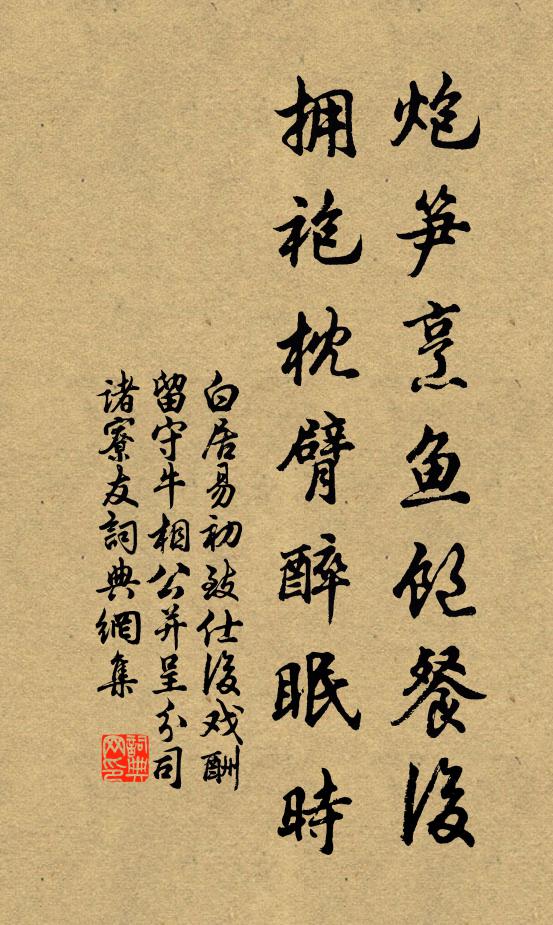 炮笋烹鱼飽餐後
拥袍枕臂醉眠時
白居易初致仕後戏酬
留守牛相公并呈分司
诸寮友詞典網集
詞典
网印